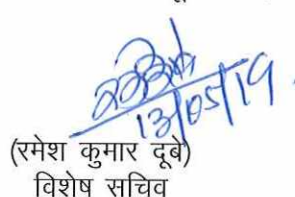 13/05/19
(रमेश कुमार दूबे)
विशेष सचिव